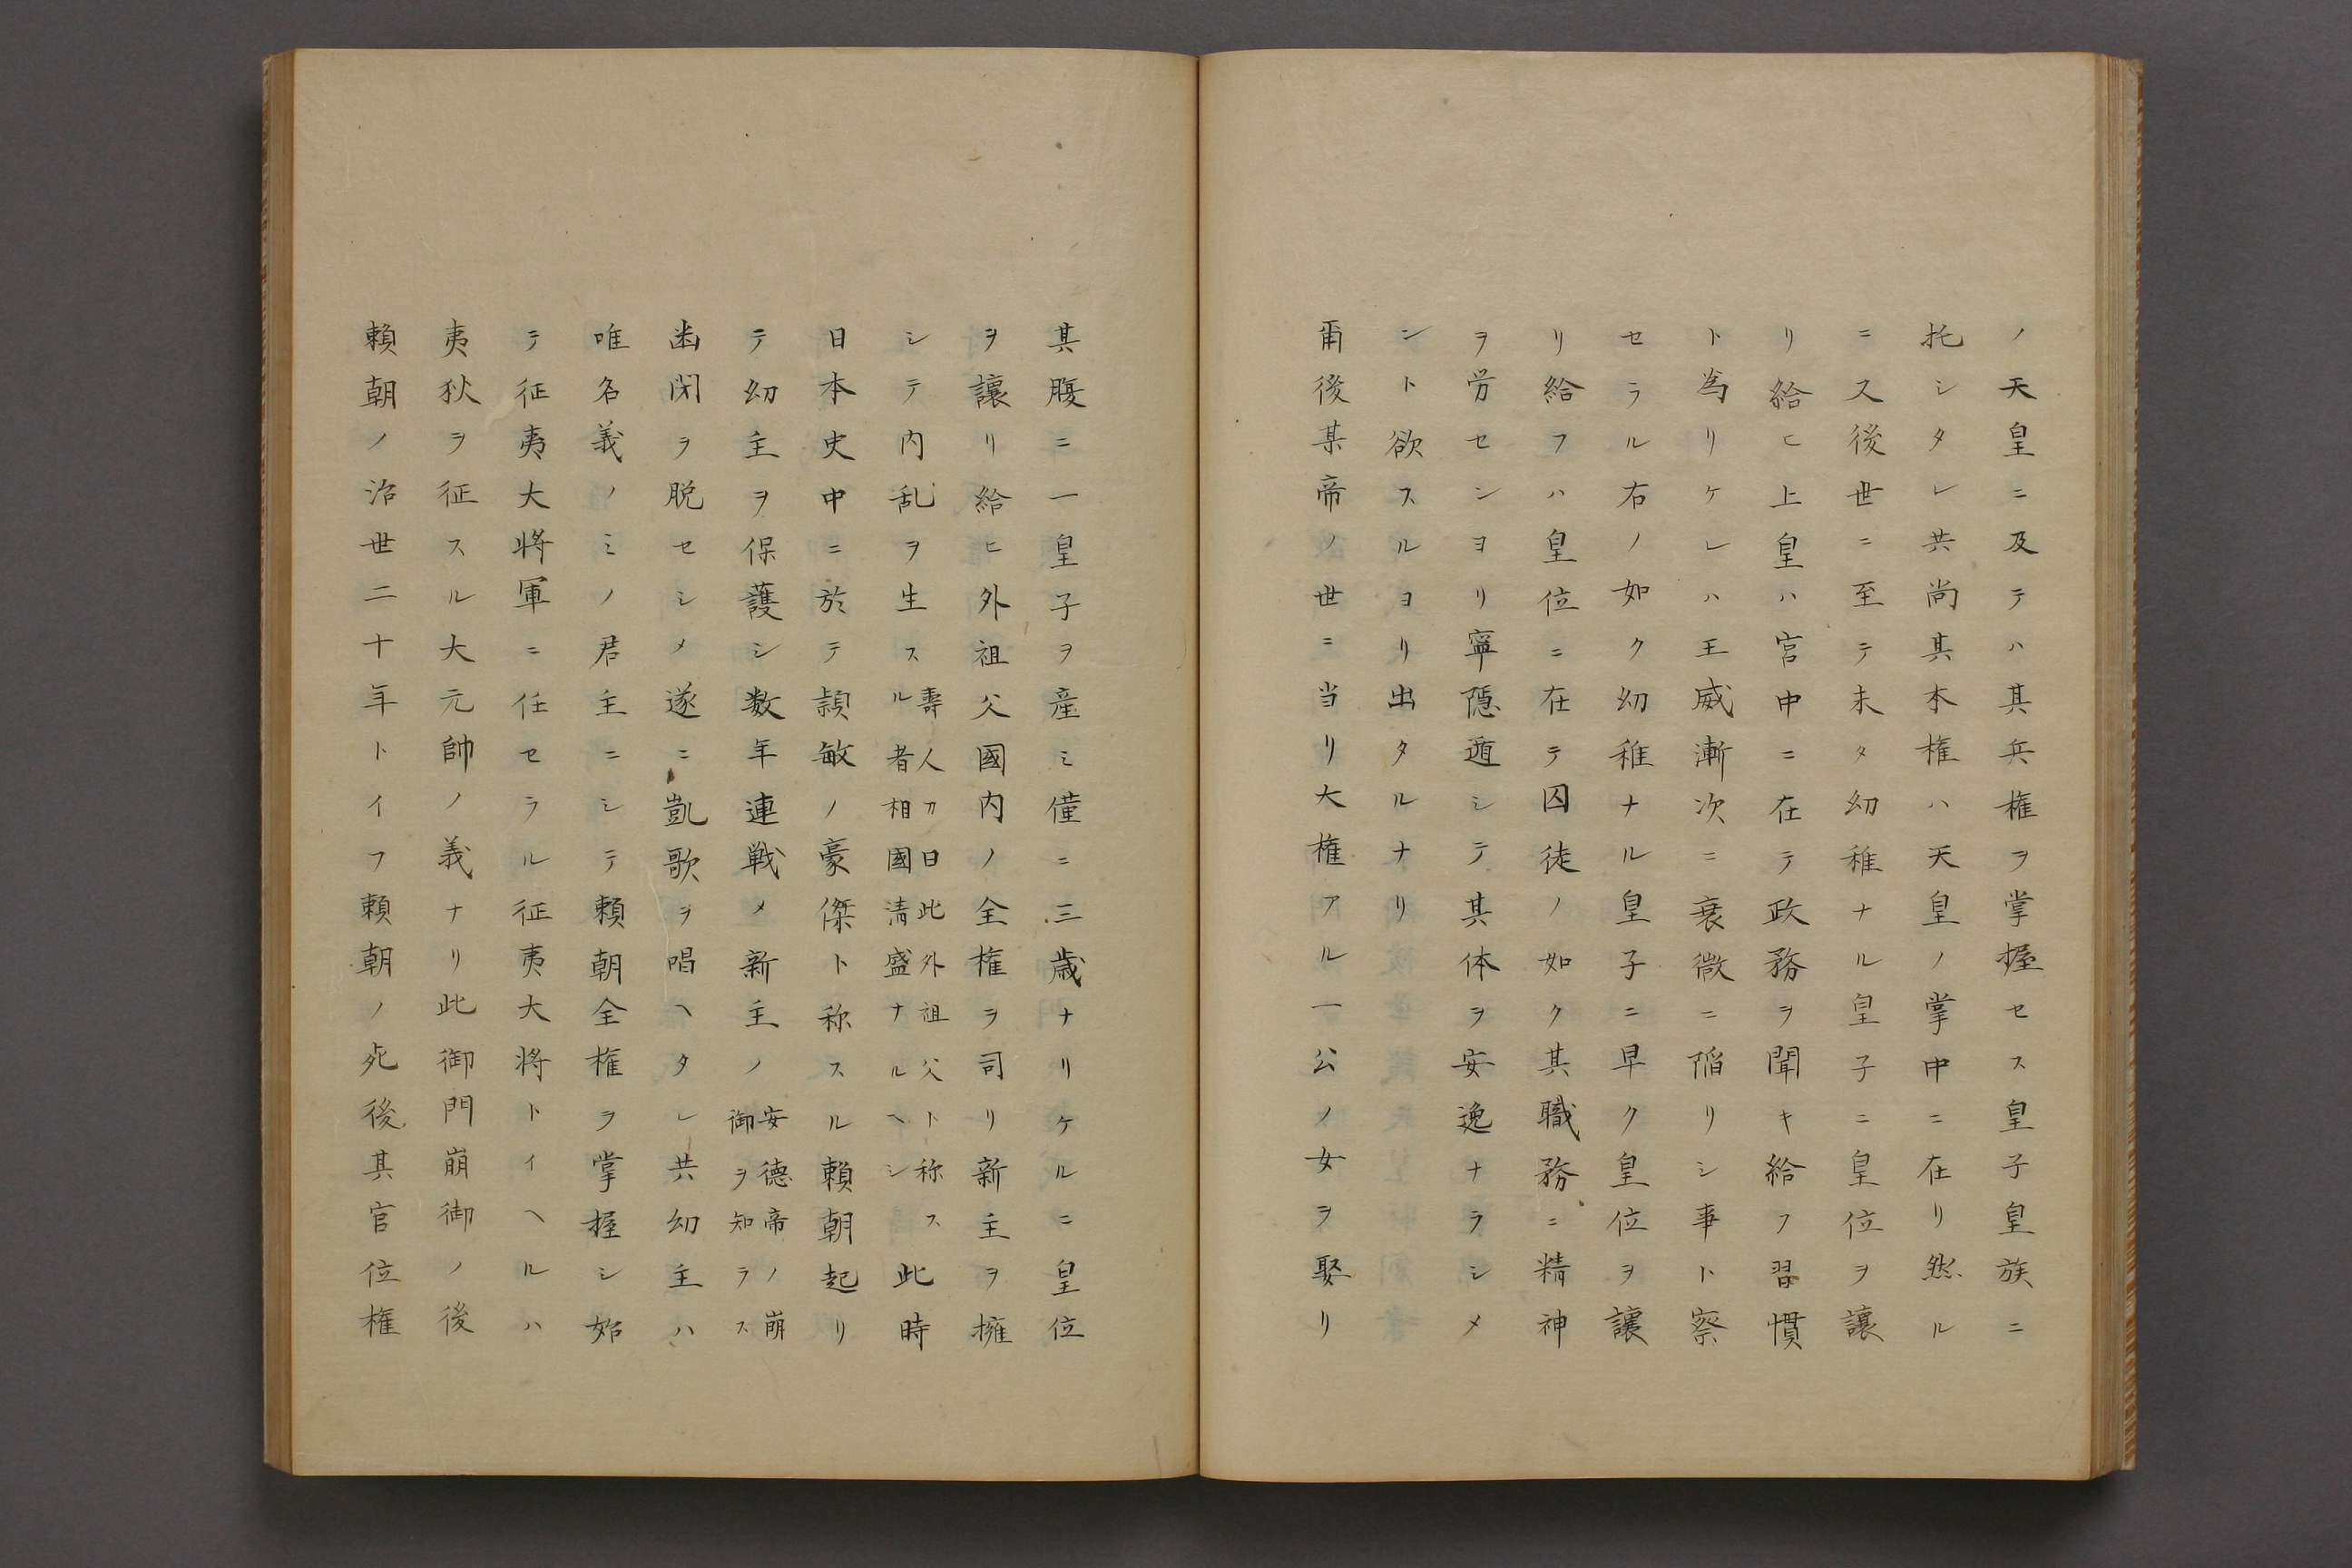 ノ天皇ニ及テハ其兵権ヲ掌握セス皇子皇族ニ
托シタレ共尚其本権ハ天皇ノ掌中ニ在リ然ル
ニ又後世ニ至テ未タ幼稚ナル皇子ニ皇位ヲ譲
リ給ヒ上皇ハ宮中ニ在テ政務ヲ聞キ給フ習慣
ト為リケレハ王威漸次ニ衰微ニ陥リシ事ト察
セラル右ノ如ク幼稚ナル皇子ニ早ク皇位ヲ譲
リ給フハ皇位ニ在テ囚徒ノ如ク其職務ニ精神
ヲ労センヨリ寧隠遁シテ其体ヲ安逸ナラシメ
ント欲スルヨリ出タルナリ
爾後某帝ノ世ニ当リ大権アル一公ノ女ヲ娶リ
其腹ニ一皇子ヲ産ミ僅ニ三歳ナリケルニ皇位
ヲ譲リ給ヒ外祖父國内ノ全権ヲ司リ新主ヲ擁
シテ内乱ヲ生スル
壽人刀曰此外祖父ト称ス
者相國清盛ナルヘシ
此時
日本史中ニ於テ頴敏ノ豪傑ト称スル頼朝起リ
テ幼主ヲ保護シ数年連戦メ新主ノ
安徳帝ノ崩
御ヲ知ラス
凾閉ヲ脱セシメ遂ニ凱歌ヲ唱ヘタレ共幼主ハ
唯名義ノミノ君主ニシテ頼朝全権ヲ掌握シ始
テ征夷大将軍ニ任セラル征夷大将トイヘルハ
夷狄ヲ征スル大元帥ノ義ナリ此御門崩御ノ後
頼朝ノ治世二十年トイフ頼朝ノ死後其官位権